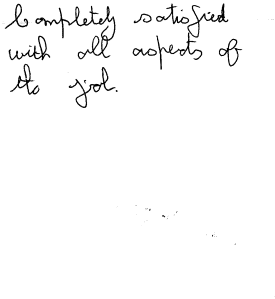 Completely satisfied
with all aspects of
the job.